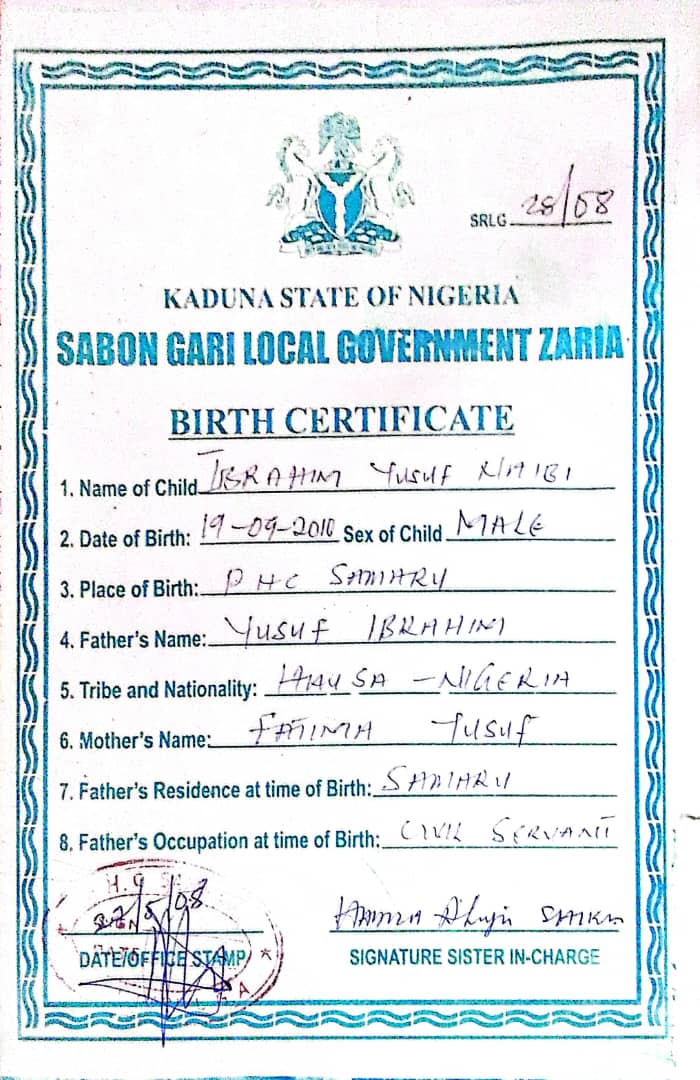 SRLG 28/08
KADUNA STATE OF NIGERIA
SABON GARI LOCAL GOVERNMENT ZARIA
BIRTH CERTIFICATE
1. Name of Child IBRAHIM YUSUF NAIBI
2. Date of Birth: 19-09-2010 Sex of Child MALE
3. Place of Birth: PHC SAMARU
4. Father's Name: YUSUF IBRAHIM
5. Tribe and Nationality: HAUSA - NIGERIA
6. Mother's Name: FATIMA YUSUF
7. Father's Residence at time of Birth: SAMARU
8. Father's Occupation at time of Birth: CIVIL SERVANT
27/5/08
DATE/OFFICE STAMP
SIGNATURE SISTER IN-CHARGE